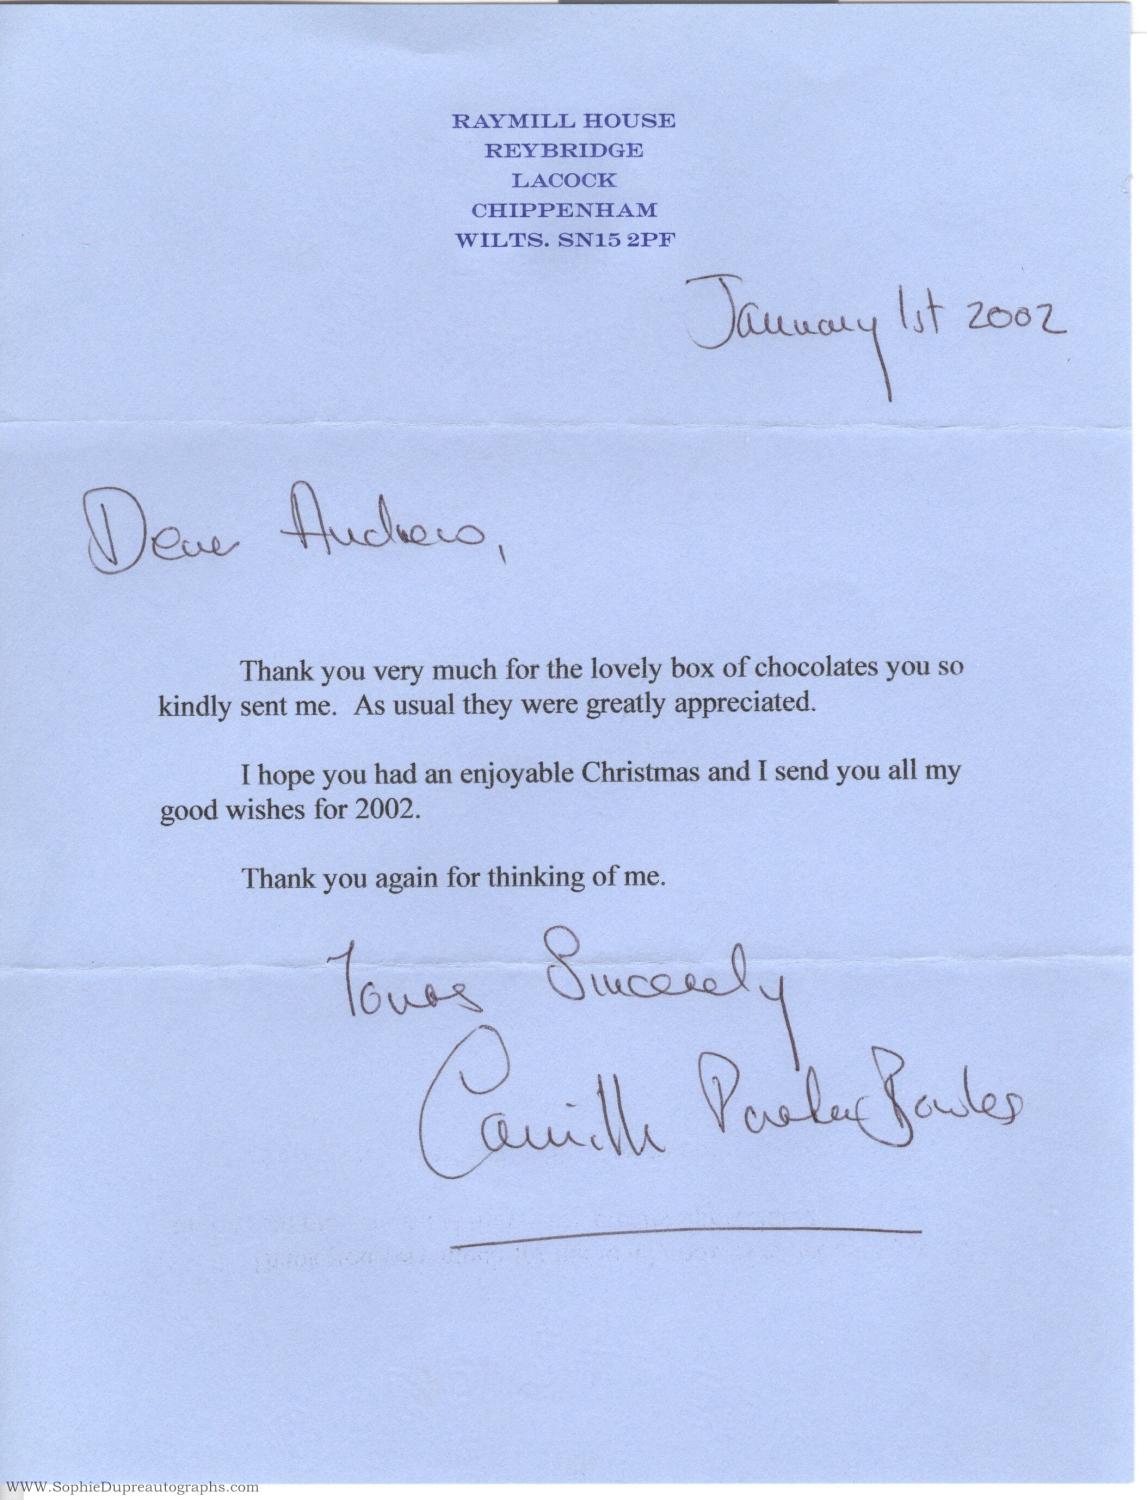 RAYMILL HOUSE
REYBRIDGE
LACOCK
CHIPPENHAM
WILTS. SN15 2PF
January 1st 2002
Dear Andrew,
Thank you very much for the lovely box of chocolates you so
kindly sent me. As usual they were greatly appreciated.
I hope you had an enjoyable Christmas and I send you all my
good wishes for 2002.
Thank you again for thinking of me.
Yours Sincerely
Camilla Parker Bowles
WWW.SophieDupreautographs.com